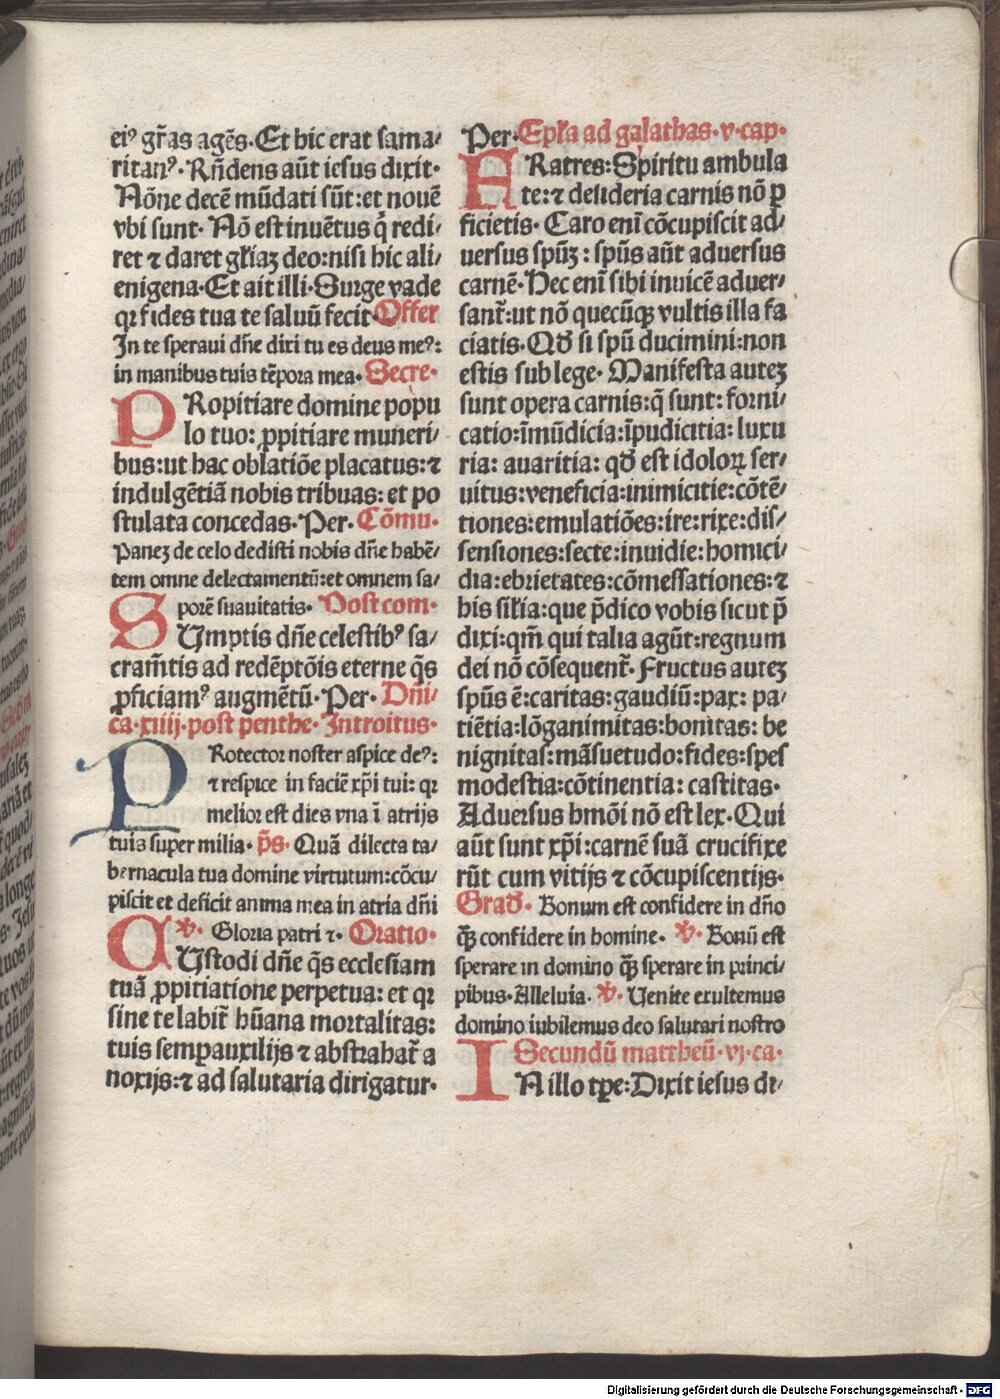 eiꝰ gr̃as agẽs. Et hic erat sama⸗
ritanꝰ. Rñdens aũt iesus dixit.
Nõne decẽ mũdati sũt: et nouẽ
vbi sunt. Nõ est inuẽtus q̇ redi⸗
ret ⁊ daret gl̃iaꝫ deo: nisi hic ali⸗
enigena. Et ait illi. Surge vade
qꝛ fides tua te saluũ fecit. Offer
In te speraui dñe dixi tu es deus meꝰ:
in manibus tuis tẽpora mea. Secre.
PRopitiare domine popu
lo tuo: ꝓpitiare muneri⸗
bus: ut hac oblatiõe placatus: ⁊
indulgẽtiã nobis tribuas: et po
stulata concedas. Per. Cõmu.
Paneꝫ de celo dedisti nobis dñe habẽ⸗
tem omne delectamentũ: et omnem sa⸗
porẽ suauitatis. Post com.
SUmptis dñe celestibꝰ sa⸗
cram̃tis ad redẽptõis eterne q̃s
ꝓficiamꝰ augmẽtũ. Per. Dñi⸗
ca. xiiij. post penthe. Introitus.
PRotector noster aspice deꝰ:
⁊ respice in faciẽ xp̃i tui: qꝛ
melior est dies vna ĩ atrijs
tuis super milia. p̃s. Quã dilecta ta⸗
bernacula tua domine virtutum: cõcu⸗
piscit et deficit anima mea in atria dñi
℣. Gloria patri ⁊. Oratio.
CUstodi dñe q̃s ecclesiam
tuã ꝓpitiatione perpetua: et qꝛ
sine te labit̃ hũana mortalitas:
tuis semꝑ auxilijs ⁊ abstrahat̃ a
noxijs: ⁊ ad salutaria dirigatur.
Per. Epl̃a ad galathas. v. cap.
FRatres: Spiritu ambula
te: ⁊ desideria carnis nõ ꝑ
ficietis. Caro enĩ cõcupiscit ad⸗
uersus spũꝫ: spũs aũt aduersus
carnẽ. Hec enĩ sibi inuicẽ aduer⸗
sant̃: ut nõ quecũqꝫ vultis illa fa
ciatis. Qd̃ si spũ ducimini: non
estis sub lege. Manifesta auteꝫ
sunt opera carnis: q̃ sunt: forni⸗
catio: ĩmũdicia: ĩpudicitia: luxu
ria: auaritia: qd̃ est idoloꝝ ser⸗
uitus: veneficia: inimicitie: cõtẽ⸗
tiones: emulatiões: ire: rixe: dis⸗
sensiones: secte: inuidie: homici⸗
dia: ebrietates: cõmessationes: ⁊
his sil̃ia: que p̃dico vobis sicut p̃
dixi: qm̃ qui talia agũt: regnum
dei nõ cõsequent̃. Fructus auteꝫ
spũs ẽ: caritas: gaudiũ: pax: pa⸗
tiẽtia: lõganimitas: bonitas: be
nignitas: mãsuetudo: fides: spes
modestia: cõtinentia: castitas.
Aduersus hmõi nõ est lex. Qui
aũt sunt xp̃i: carnẽ suã crucifixe
rũt cum vitijs ⁊ cõcupiscentijs.
Grad̃. Bonum est confidere in dño
qꝫ̃ confidere in homine. ℣. Bonũ est
sperare in domino qꝫ̃ sperare in princi⸗
pibus. Alleluia. ℣. Uenite exultemus
domino iubilemus deo salutari nostro
Secundũ mattheũ. vj. ca.
IN illo tꝑe: Dixit iesus di⸗
Digitalisierung gefördert durch die Deutsche Forschungsgemeinschaft - DFG